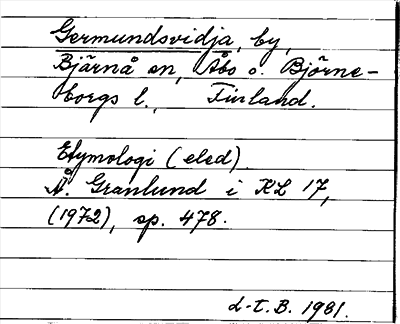 Germundsvidja, by,
Bjärnå sn, Åbo o. Björne-
borgs l., Finland.
Etymologi (eled).
Å. Granlund i KL 17,
(1972), sp. 478.
L-t. B. 1981.